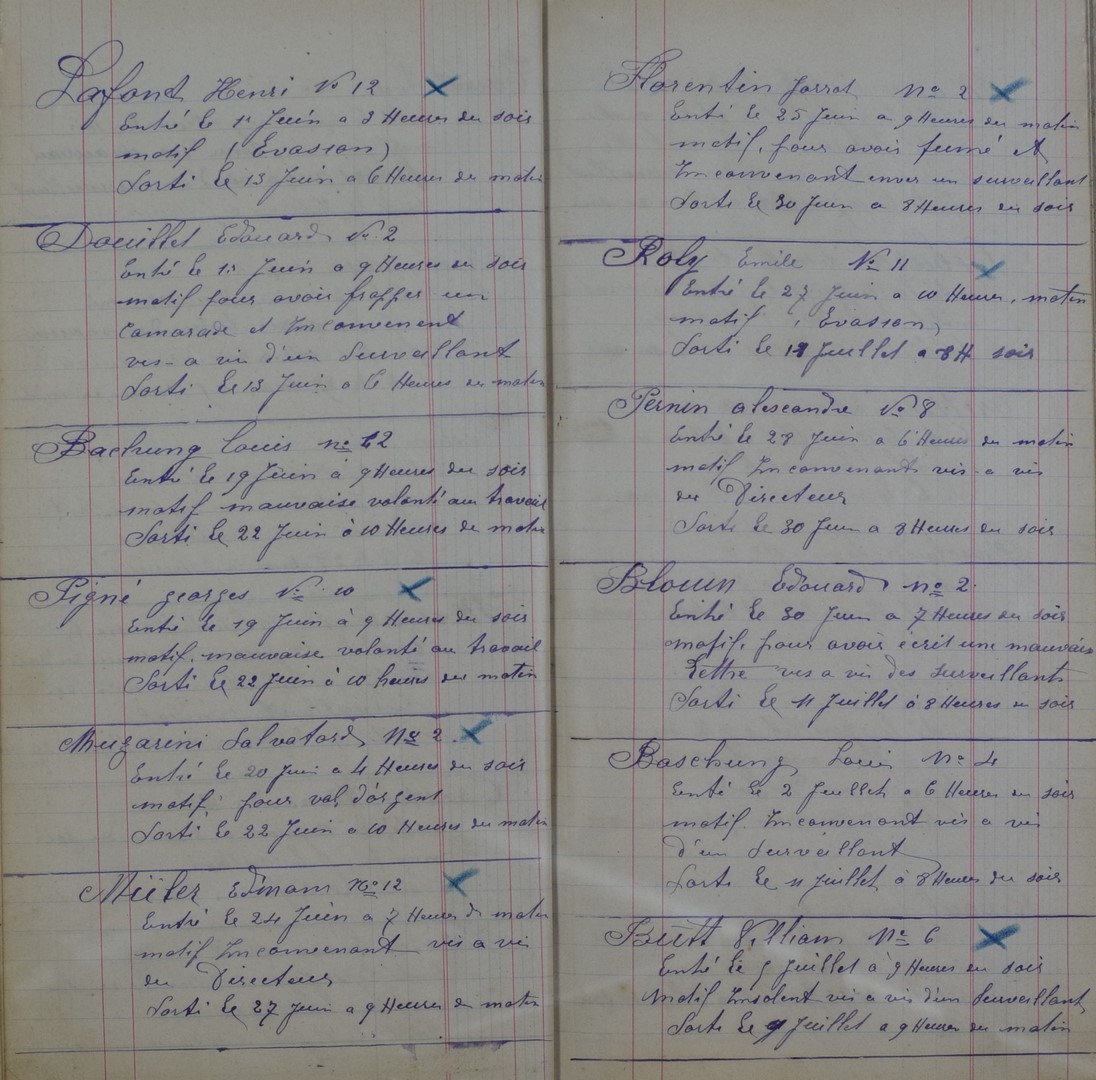 Lafond Henri No 12
Entré le 1r Juin a 3 Heures du soir
motif (Evasson)
Sorti le 13 Juin a 6 Heures du matin
Douillet Edouard No 2
Entré le 1r Juin a 9 Heures du soir
motif pour avoir frapper un
Camarade et Inconvenent
vis-a vis d'un Surveillant
Sorti le 13 Juin a 6 Heures du matin
Bachung Louis no 12
Entré le 19 Juin à 9 Heures du soir
motif mauvaise volonté au travail
Sorti le 22 Juin à 10 Heures du matin
Pigné georges No 10
Entré le 19 Juin à 9 Heures du soir
motif. mauvaise volonté au travail
Sorti le 22 Juin à 10 heures du matin
Mugarini Salvatord No 2
Entré le 20 Juin a 4 Heures du soir
motif pour vol d'argent
Sorti le 22 Juin a 10 Heures du matin
Müller Edmam No 12
Entré le 24 Juin a 7 Heures d matin
motif Inconvenant vis a vis
du Directeur
Sorti le 27 Juin a 9 Heures du matin
Florentin No 2
Entré le 25 Juin a 9 Heures du matin
motif, pour avoir fumé et
Inconvenant enver un surveillant
Sorti le 30 Juin a 8 Heures du soir
Roly Emile No 11
Entré le 27 Juin a 10 Heures, matin
motif (Evasson)
Sorti le 18 Juillet a 8 H soir
Pernin alescandre No 8
Entré le 28 Juin a 6 Heures du matin
motif Inconvenant vis-a vis
du Directeur
Sorti le 30 Juin a 8 Heures du soir
Blouin Edouard no 2
Entré le 30 Juin a 7 Heures du soir
motif, pour avoir écrit une mauvais
Lettre vis a vis des surveillants
Sorti le 11 Juillet à 8 Heures du soir
Baschung Louis No 4
Entré le 2 Juillet a 6 Heures du soir
motif. Inconvenant vis a vis
d'un Surveillant
Sorti le 11 Juillet à 8 Heures du soir
Bütt Villiam No 6
Entré le 5 Juillet à 9 Heures du soir
Motif Insolent vis a vis d'un Surveillant
Sorti le 9 Juillet a 9 Heures du matin